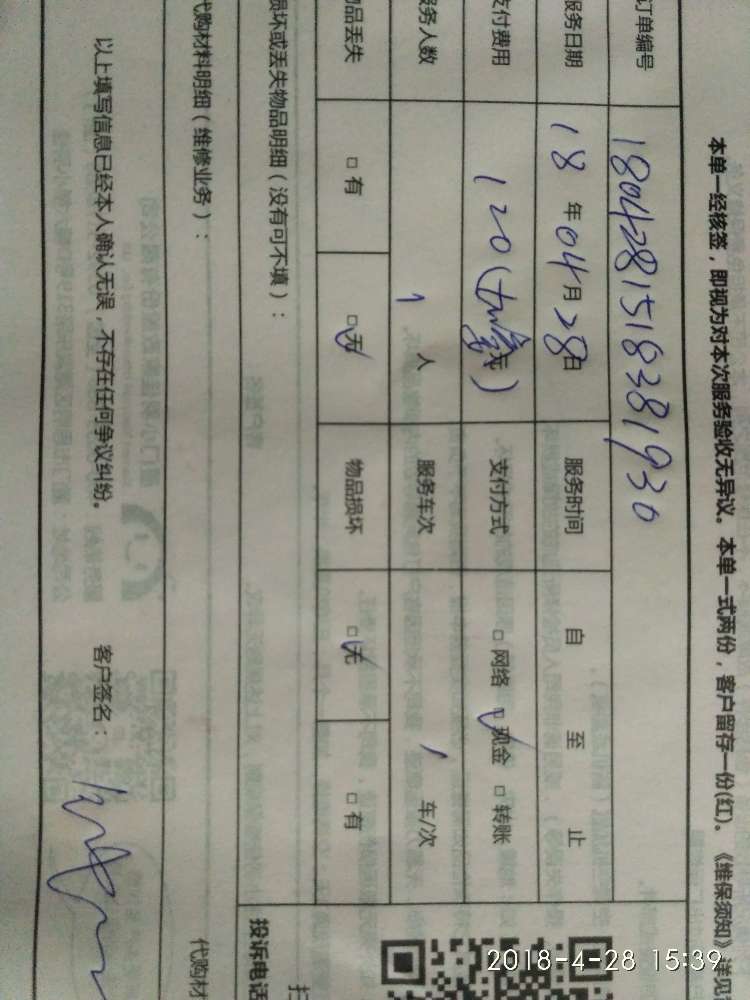 本单一经核签，即视为对本次服务验收无异议。本单一式两份，客户留存一份(红)。《维保须知》详见
订单编号 1804281518381930
服务日期 18 年 04 月 28 日 服务时间 自 至 止
支付费用 120 ( 元) 支付方式 □ 网络 ☑ 现金 □ 转账
服务人数 1 人 服务车次 1 车/次
物品丢失 □ 有 ☑ 无 物品损坏 ☑ 无 □ 有
损坏或丢失物品明细（没有可不填）：
投诉电话
代购材料明细（维修业务）：
代购材
以上填写信息已经本人确认无误，不存在任何争议纠纷。 客户签名：
2018-4-28 15:39